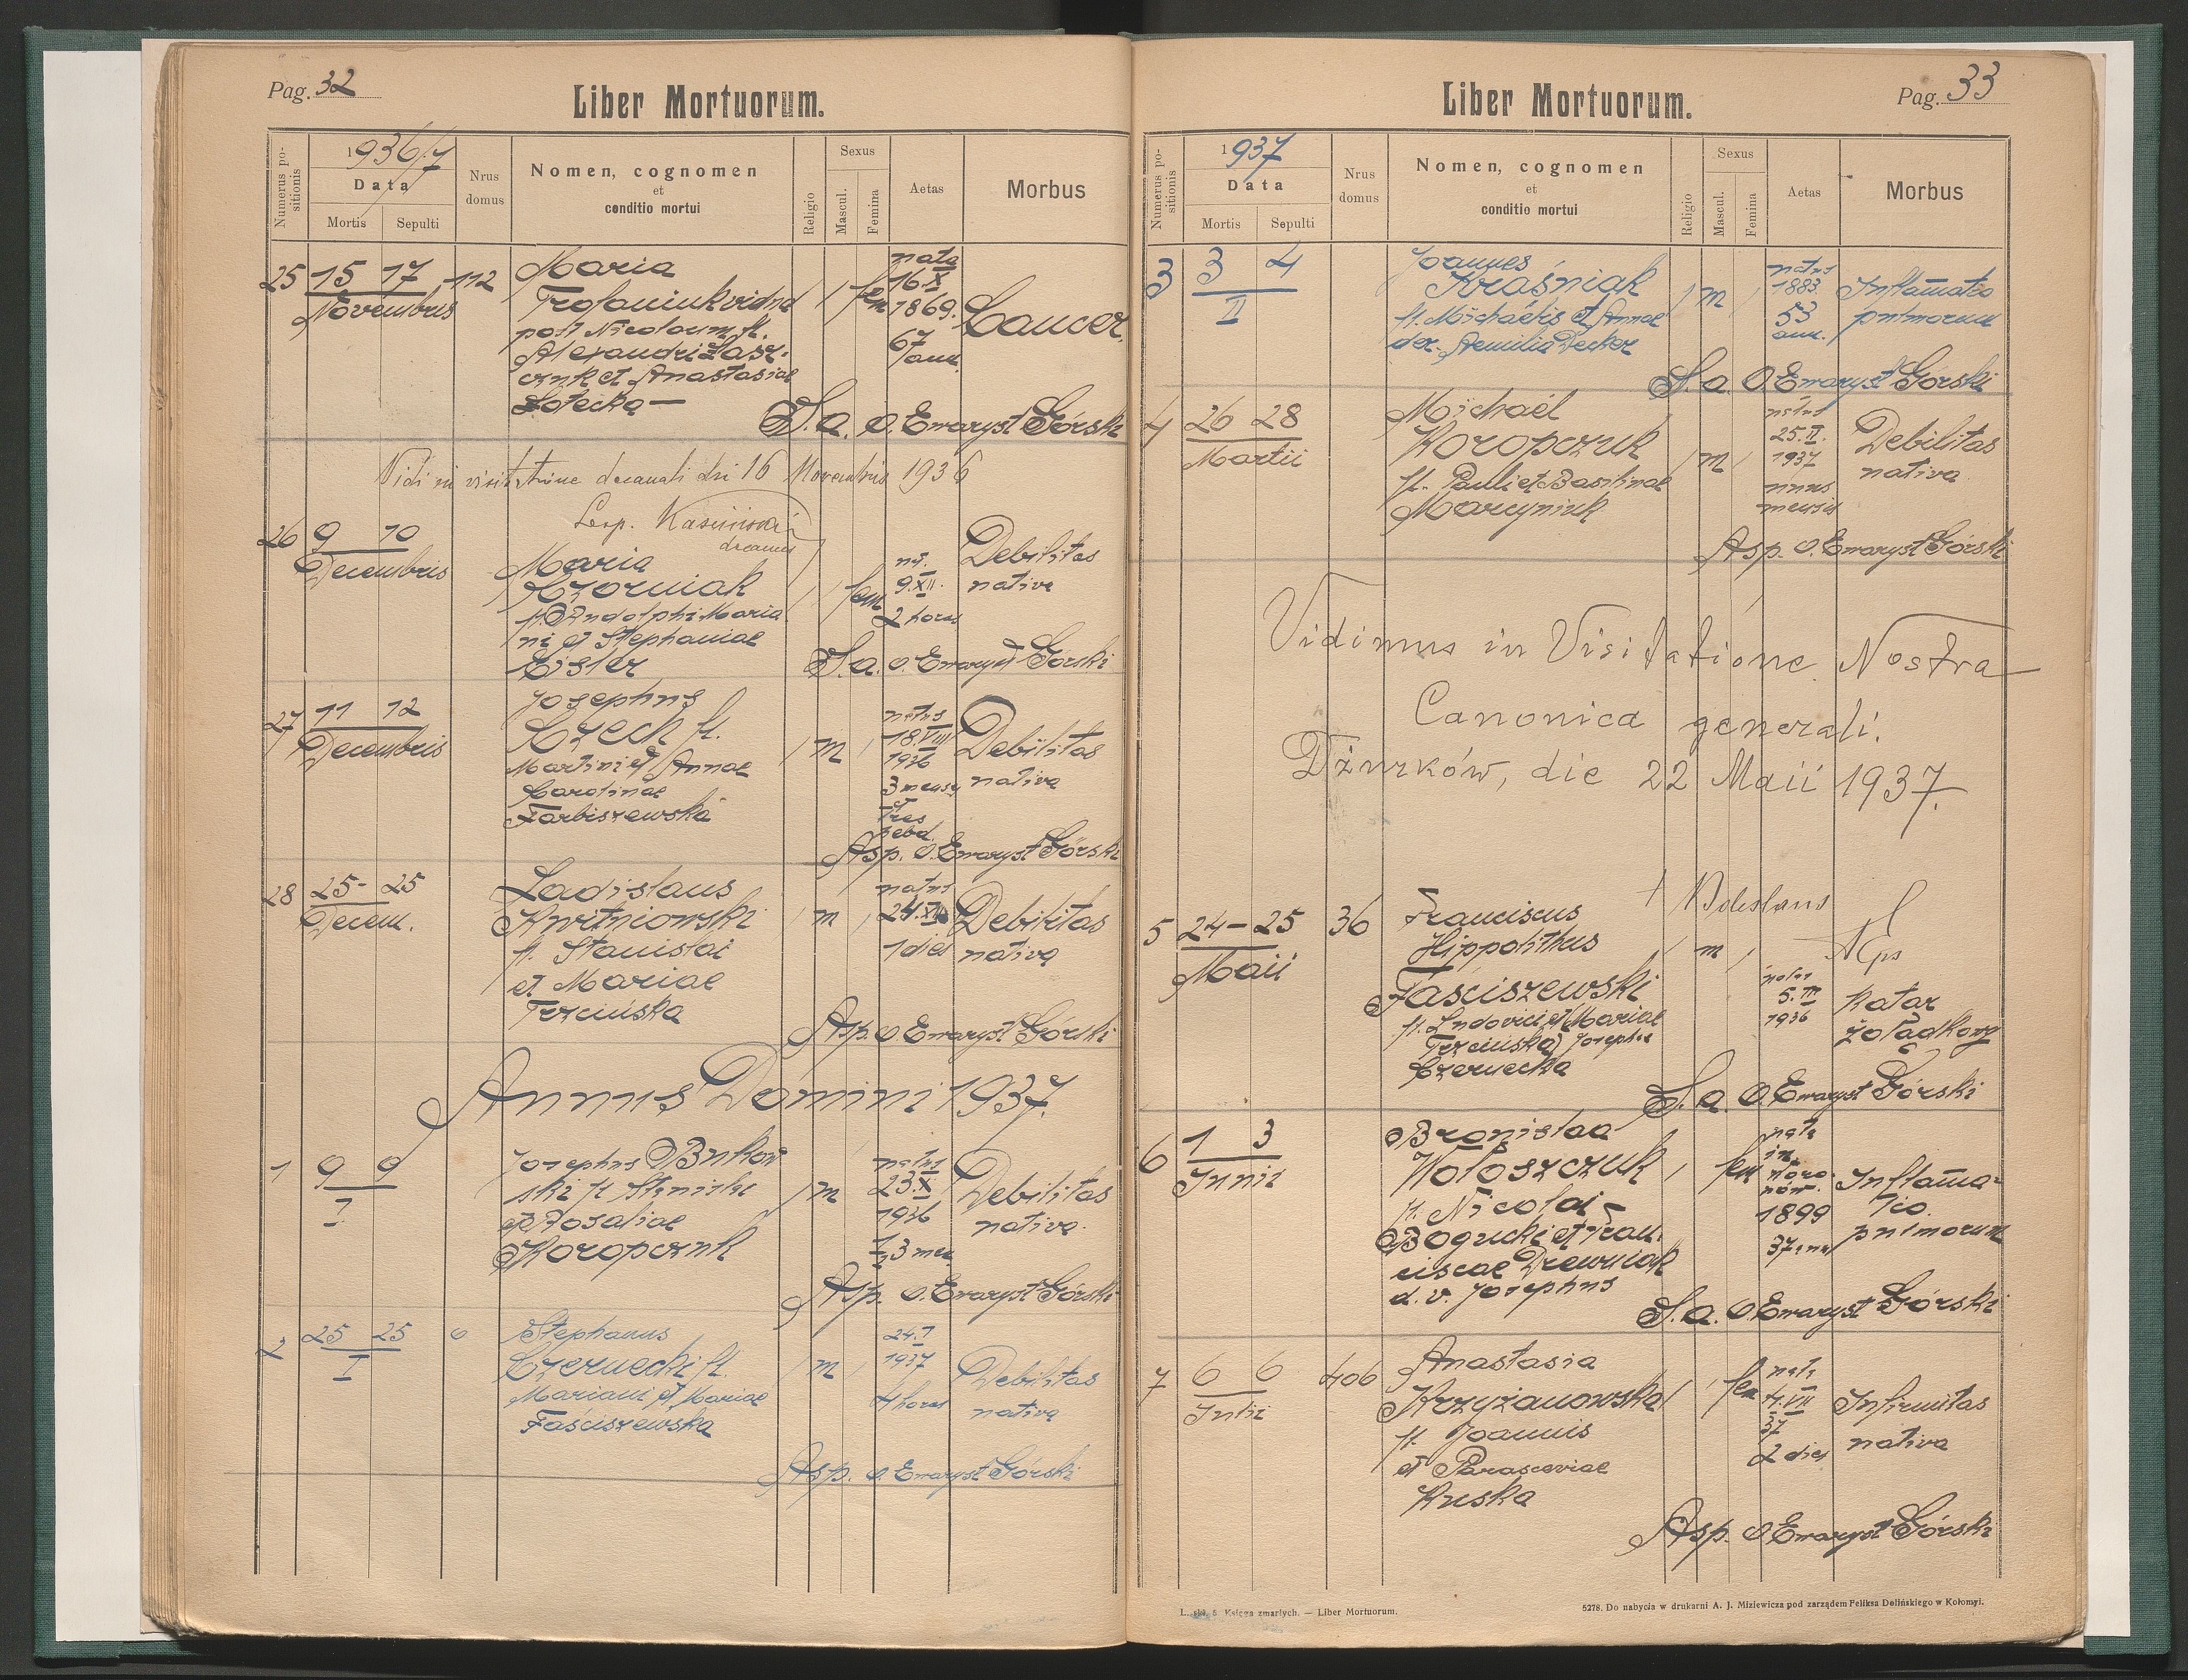 Pag. 32
Liber Mortuorum.
Numerus positionis
1936/7
Data
Mortis Sepulti
Nrus domus
Nomen, cognomen
et
conditio mortui
Religio
Sexus
Mascul.
Femina
Aetas
Morbus
25 15 17 112 Maria fem nata
Novembris Trofaniuk vidua 16.X 1869. Cancer
post Nicolaum, fl. 67
Alexandri Łasz- ann.
czuk et Anastasiae
Łotecka —
S. a. O. Ewaryst Górski
Vidi in visitatione decanali die 16 Novembris 1936
decanus
26 9 10 Maria nt. Debilitas
Decembris Czorniak fem 9.XII. nativa
fl. Andolphi Maria 2 horas
ni et Stephaniae
Eisler
S. a. O. Ewaryst Górski
27 11 12 Josephus natus Debilitas
Decembris Czech fl. m 18.VIII nativa
Martini et Annae 1936
Carolinae 3 mens.
Farbiszewska tres
hebd.
Asp. O. Ewaryst Górski
28 25 - 25 Ladislaus natus Debilitas
Decem. Kwitniowski m 24.XII nativa
fl. Stanislai 1 dies
et Mariae
Trzcińska
Asp. O. Ewaryst Górski
Annus Domini 1937.
1 9 9 Josephus Bukow natus Debilitas
I ski fl Stanislai m 23.X nativa.
et Rosaliae 1936
Koropczuk 3 men
Asp. O. Ewaryst Górski
2 25 25 6 Stephanus 24.I Debilitas
I Czernecki fl. m 1937 nativa
Mariani et Mariae 4 horas
Faściszewska
Asp. O. Ewaryst Górski
Liber Mortuorum.
Pag. 33
Numerus positionis
1937
Data
Mortis Sepulti
Nrus domus
Nomen, cognomen
et
conditio mortui
Religio
Sexus
Mascul.
Femina
Aetas
Morbus
3 3 4 Joannes natus Inflamatio
II Kraśniak m 1883. pulmorum
fl. Michaëlis et Annae 53
der. Aemilia Decker ann.
S. a. O. Ewaryst Górski
4 26 28 Michaël natus Debilitas
Martii Koropczuk m 25.II. nativa
fl. Pauli et Basilinae 1937
Marcyniuk unus
mensis
Asp. O. Ewaryst Górski
Vidimus in Visitatione Nostra
Canonica generali.
Dżurków, die 22 Maii 1937.
† Boleslaus
Eps
5 24 - 25 36 Franciscus
Maii Hippolithus m
Faściszewski natus
fl. Ludovici et Mariae 5.III Katar
Trzcińska Josephi 1936 żołądkowy
Czernecka
S. a. O. Ewaryst Górski
6 1 3 Bronislaa nata
Junii Wołoszczuk fem in Inflama-
fl. Nicolai 1899 tio
Bogucki et Fran- 37 ann pulmorum
ciscae Drewniak
d. v. Josephus
S. a. O. Ewaryst Górski
7 6 6 406 Anastasia nata
Julii Krzyżanowska fem 4.VII Infirmitas
fl. Joannis 37 nativa
et Parasceviae 2 dies
Kuska
Asp. O. Ewaryst Górski
Księga zmarłych. — Liber Mortuorum.
5278. Do nabycia w drukarni A. J. Miziewicza pod zarządem Feliksa Dolińskiego w Kołomyi.